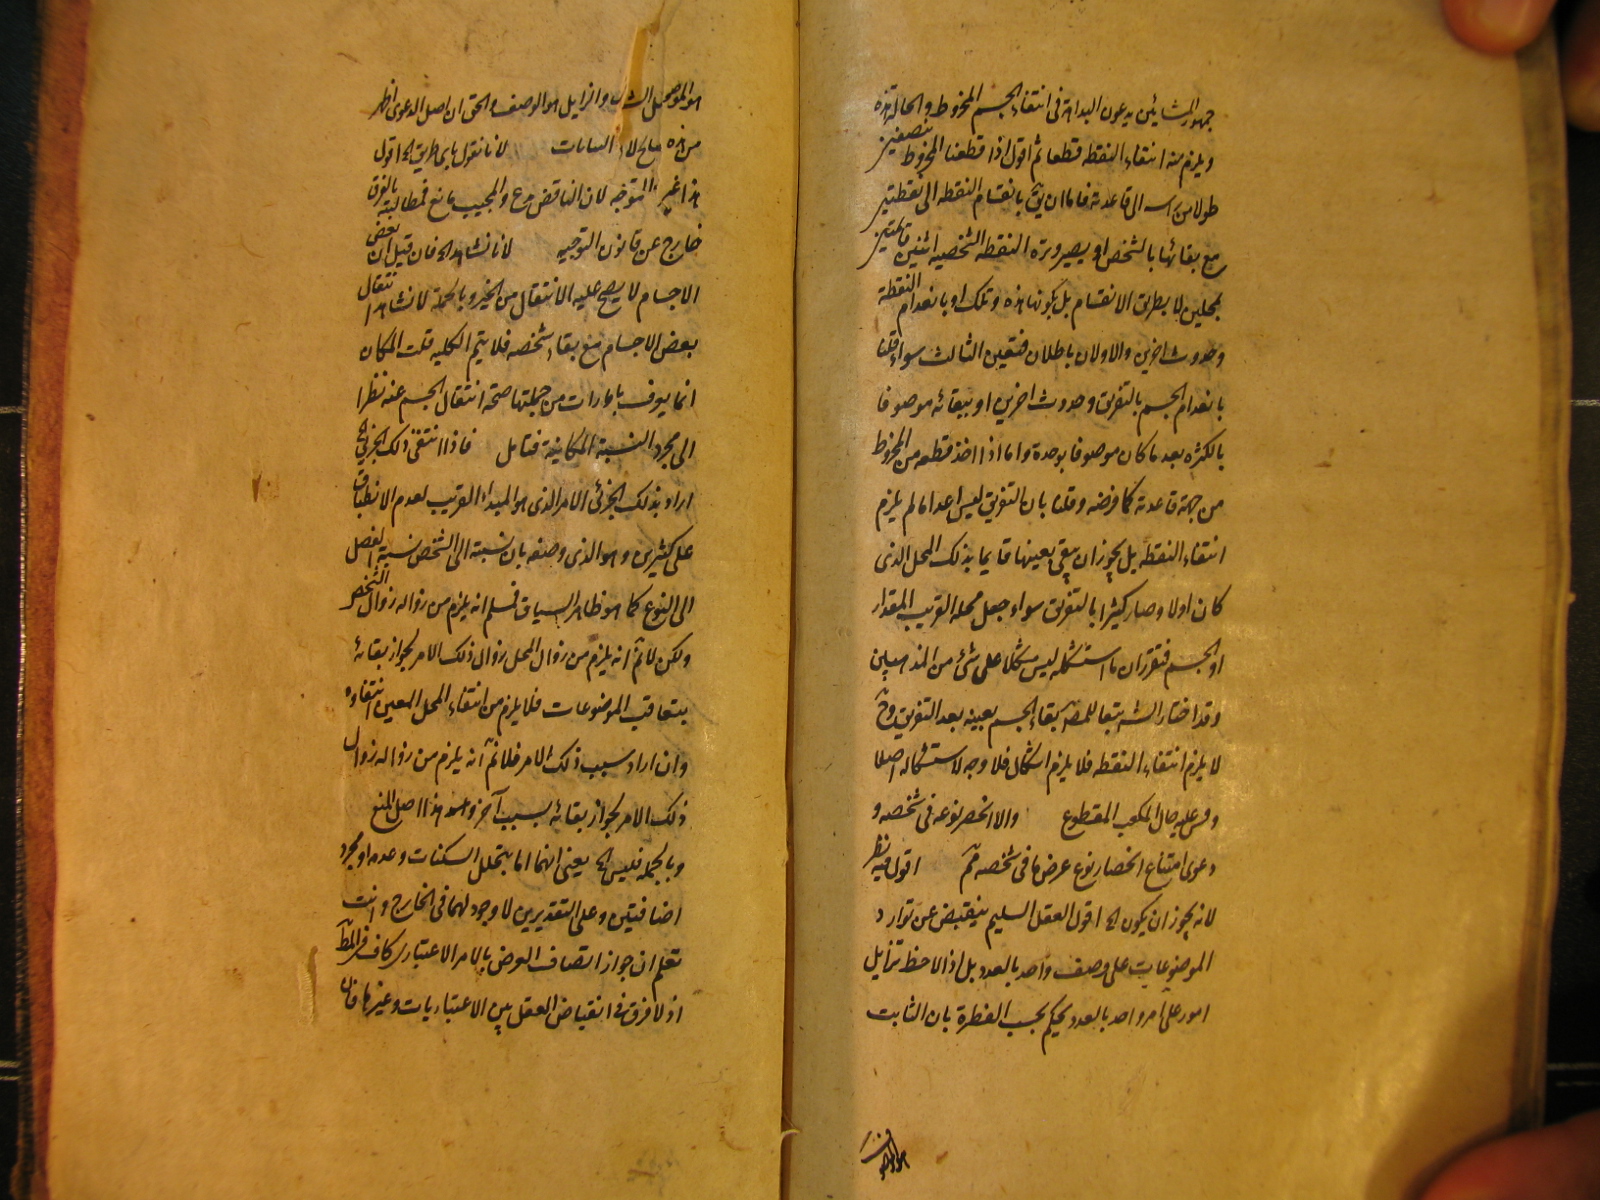 جمهور المشائين يدعون البداهة فى انتفاء الجسم المخروط والحالة هذه
ويلزم منه انتفاء النقطه قطعا ثم اقول اذا قطعنا المخروط بنصفين
طولا من راسه الى قاعدته فاما ان يق بانقسام النقطه الى نقطتين
مع بقائها بالشخص او بصيرورة النقطه الشخصيه اثنين قائمتين
بمحلين لا بطريق الانقسام بل بكونها هذه وتلك او بانعدام النقطة
وحدوث اخرين والاولان باطلان فتعين الثالث سواء قلنا
بانعدام الجسم بالتفريق وحدوث اخرين او ببقائه موصوفا
بالكثره بعد ما كان موصوفا بوحدة واما اذا اخذ قطعه من المخروط
من جهة قاعدته كما فرضه وقلنا بان التفريق ليس اعداما لم يلزم
انتفاء النقطه بل يجوز ان يبقى بعينها قايما بذلك المحل الذى
كان اولا وصار كثيرا بالتفريق سواء جعل محله القريب المقدار
او الجسم فتقرر ان ما استشكله ليس مشكلا على شئ من المذهبين
وقد اختار الشه تبعا للمصّ بقاء الجسم بعينه بعد التفريق وح
لا يلزم انتفاء النقطه فلا يلزم اشكال فلا وجه لاستشكاله اصلا
وقس عليه حال المكعب المقطوع والا انحصر نوعه فى شخصه و
دعوى امتناع انحصار نوع عرض ما فى شخصه اقول فيه نظر
لانه يجوز ان يكون الخ اقول العقل السليم ينقبض عن توارد
الموضوعات على وصف واحد بالعدد بل اذا لاحظ تزايل
امور على امر واحد بالعدد يحكم بحسب الفطرة بان الثابت
هو الموصوف
هو الموضوع والزايل هو الوصف والحق ان اصل الدعوى اظهر
من هذه لانا نقول باى طريق الخ اقول
هذا غير المتوجه لان الناقض مدع والمجيب مانع فمطالبته بالفرق
خارج عن قانون التوجيه لانا نشاهد الخ فان قيل ان بعض
الاجسام لا يصح عليه الانتقال من الحيز وبالجملة لا نشاهد انتقال
بعض الاجسام مع بقاء شخصه فلا يتم الكليه قلت المكان
انما يعرف بامارات من جملتها صحة انتقال الجسم عنه نظرا
الى مجرد النسبة المكانية فتامل فاذا انتفى ذلك الجزئى الخ
اراد بذلك الجزئى الامر الذى هو المبداء القريب لعدم الانطباق
على كثيرين وهو الذى وصفه بان نسبته الى الشخص نسبة الفصل
الى النوع كما هو ظاهر السياق فسلم انه يلزم من زواله زوال الشخص
ولكن لا نم انه يلزم من زوال المحل زوالى ذلك الامر لجواز بقائه
بتعاقب الموضوعات فلا يلزم من انتفاء المحل المعين انتفاوه
وان اراد سبب ذلك الامر فلا نم انه يلزم من زواله زوال
ذلك الامر لجواز بقائه بسبب آخر وهذا اصل المنع
وبالجمله فليس الخ يعنى انهما اما بتخلل السكنات وعدمه او مجرد
اضافيتين وعلى التقديرين لا وجود لهما فى الخارج وانت
تعلم ان جواز اتصاف العرض بالامر الاعتبارى كاف فى المط
اذ لا فرق فى انقباض العقل بين الاعتباريات وغيرها فان